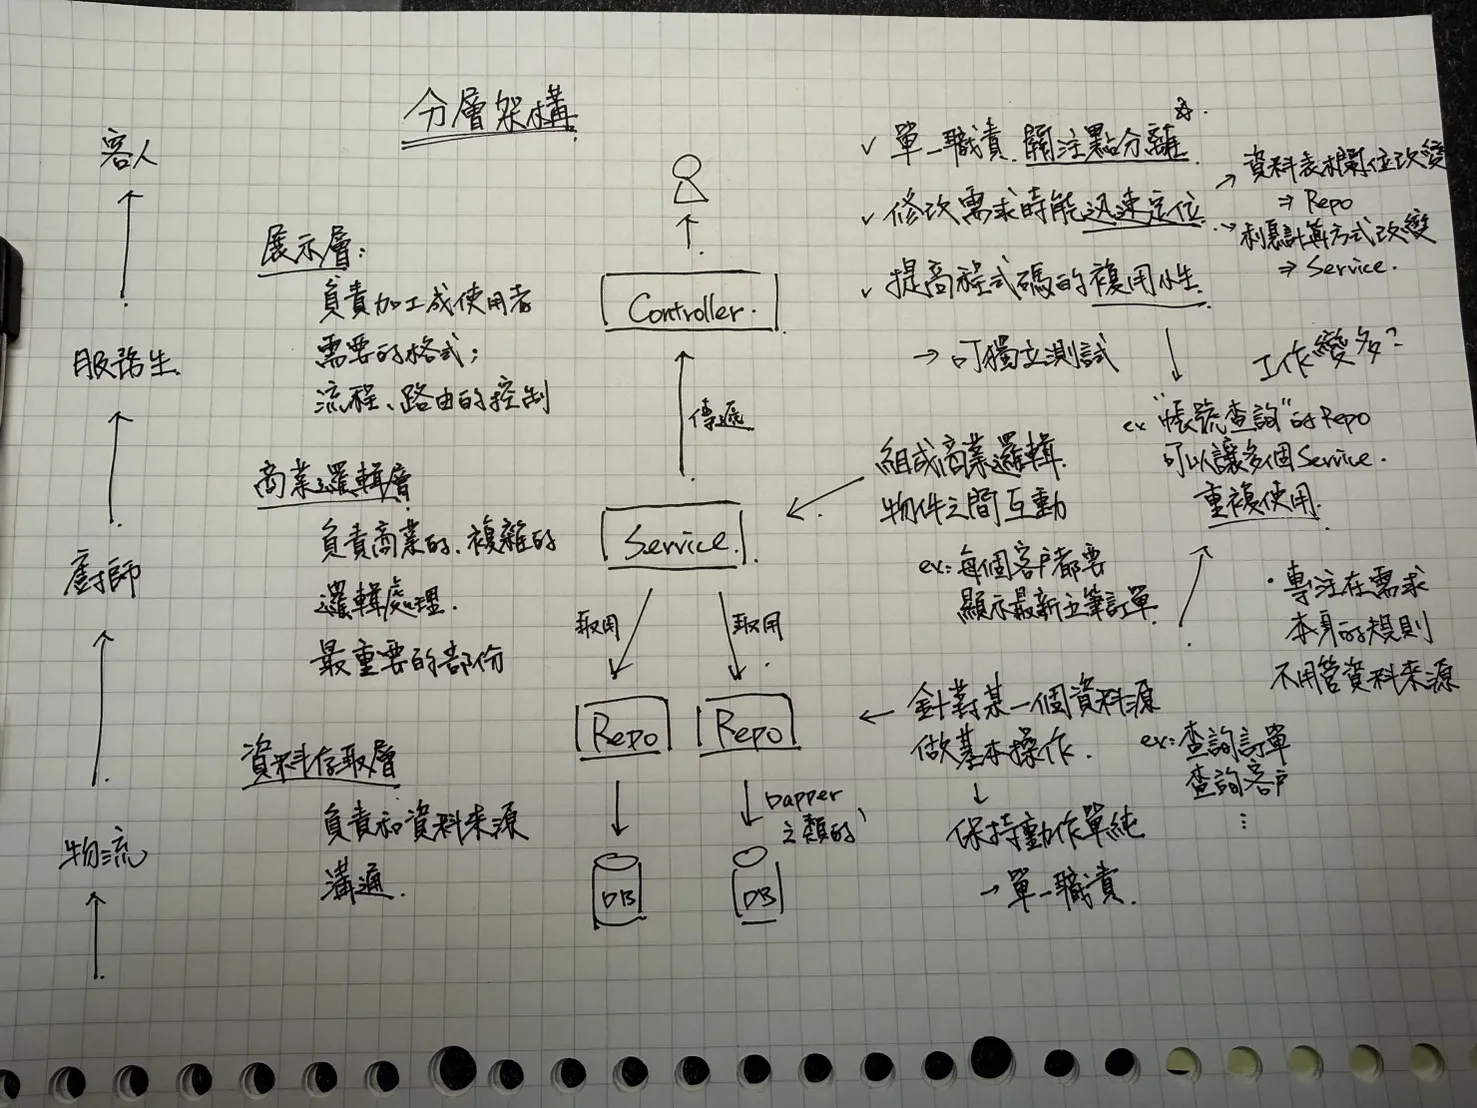 分層架構
客人
服務生
廚師
物流
展示層:
負責加工成使用者
需要的格式;
流程、路由的控制
商業邏輯層
負責商業的、複雜的
邏輯處理.
最重要的部份
資料存取層
負責和資料來源
溝通.
Controller.
傳遞
Service.
取用
取用
Repo
Repo
Dapper
之類的
DB
DB
✓ 單一職責.關注點分離 ☆
✓ 修改需求時能迅速定位
→ 資料表欄位改變
⇒ Repo
→ 利息計算方式改變
⇒ Service.
✓ 提高程式碼的複用性
→ 可獨立測試
工作變多?
ex "帳號查詢"的Repo
可以讓多個Service.
重複使用.
組成商業邏輯.
物件之間互動
ex: 每個客戶都要
顯示最新五筆訂單
・專注在需求
本身的規則
不用管資料來源
← 針對某一個資料源
做基本操作.
ex: 查詢訂單
查詢客戶
⋮
↓
保持動作單純
→ 單一職責.